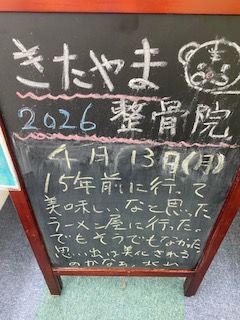 きたやま
2026 整骨院
4月13日(月)
15年前に行って
美味しいなと思った
ラーメン屋に行った。
でもそうでもなかった
思い出は美化される
のかなぁ。北山